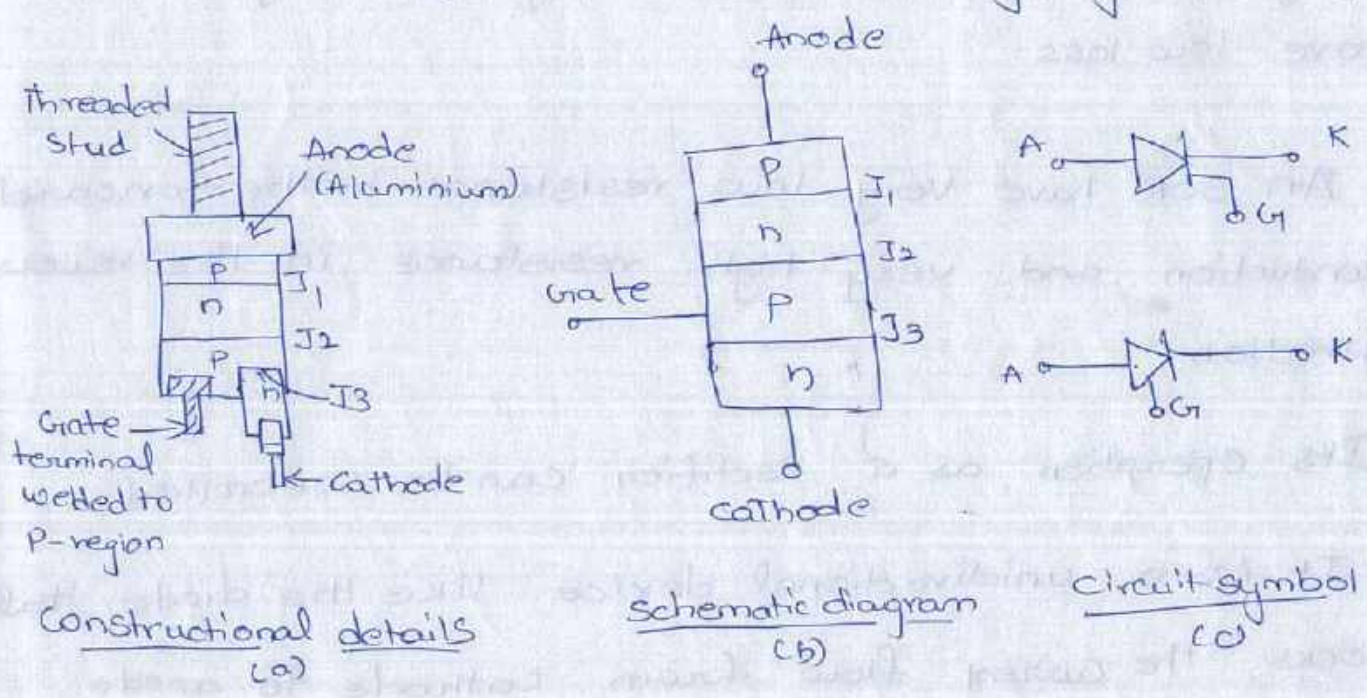 Threaded
Stud
Anode
(Aluminium)
P
J1
n
J2
P
n
J3
Gate
terminal
welted to
P-region
Cathode
Constructional details
(a)
Anode
P
J1
n
J2
Gate
P
J3
n
cathode
schematic diagram
(b)
A
K
G
A
K
G
Circuit symbol
(c)